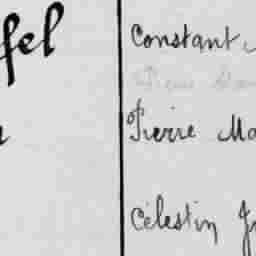 fel
Constant
Pierre Ma
Célestin J